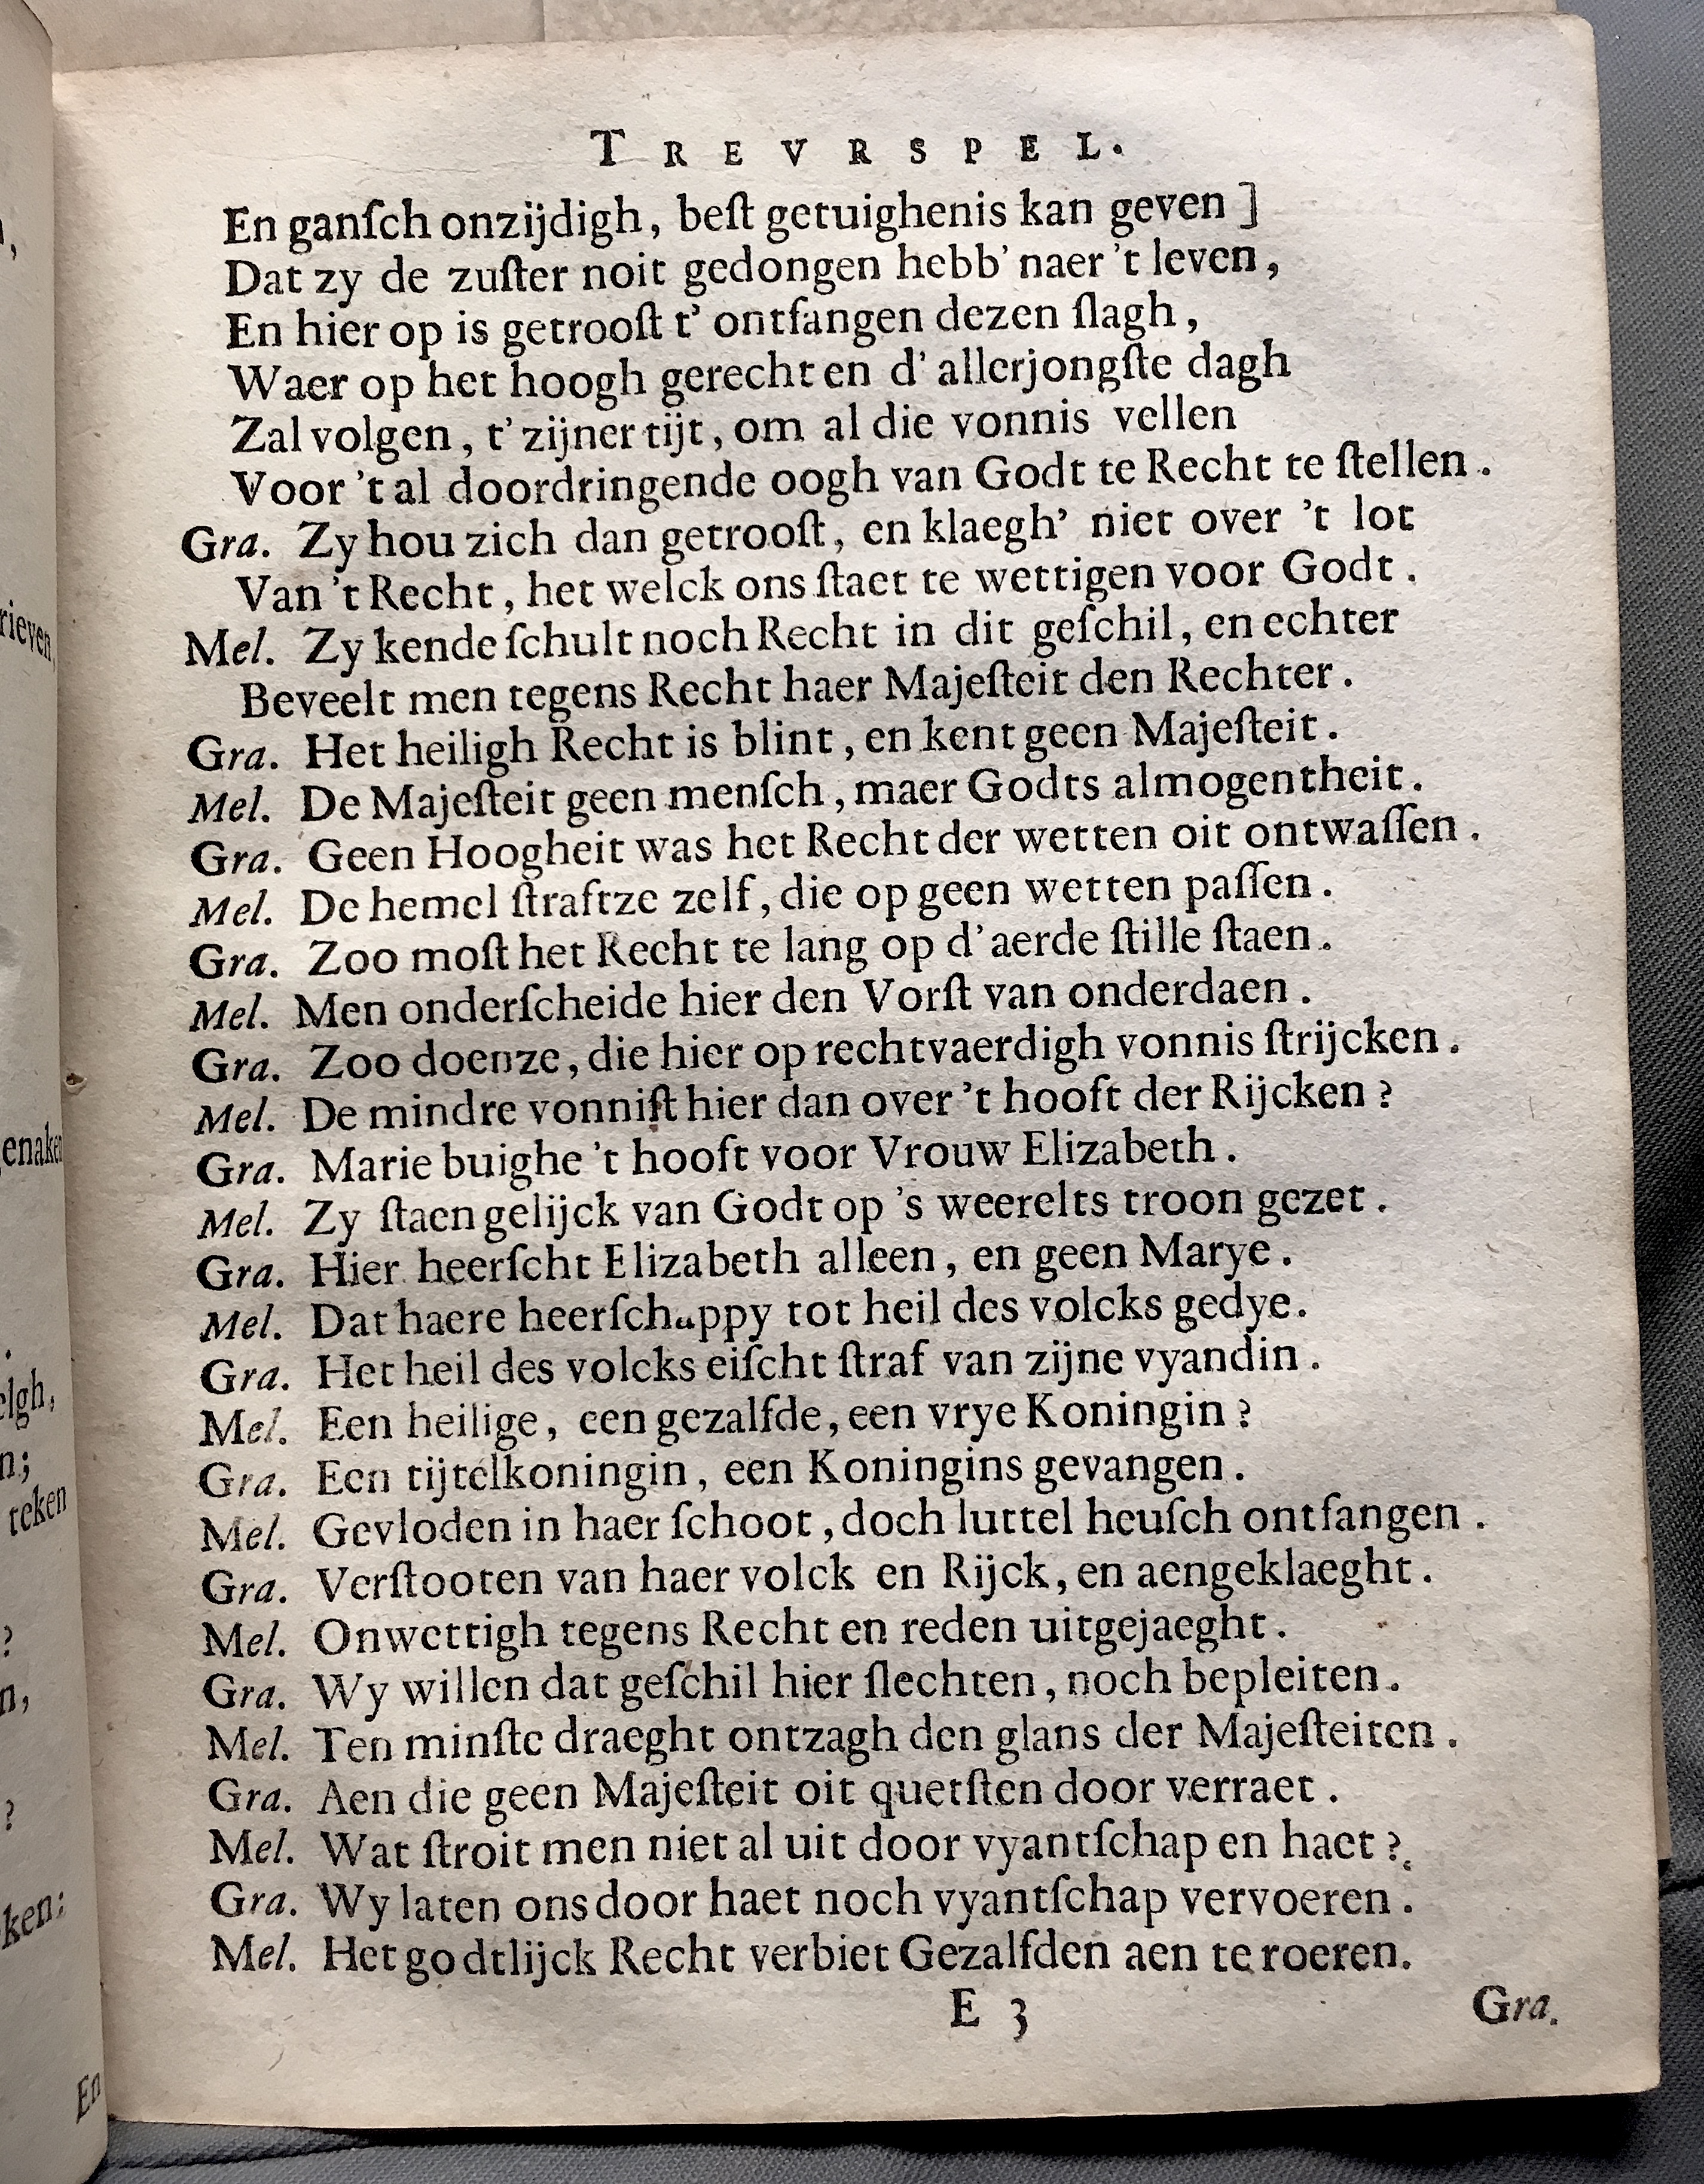 TREVRSPEL.
En ganſch onzijdigh, beſt getuighenis kan geven ]
Dat zy de zuſter noit gedongen hebb' naer 't leven,
En hier op is getrooſt t' ontfangen dezen ſlagh,
Waer op het hoogh gerecht en d' allerjongſte dagh
Zal volgen, t' zijner tijt, om al die vonnis vellen
Voor 't al doordringende oogh van Godt te Recht te ſtellen.
Gra. Zy hou zich dan getrooſt, en klaegh' niet over 't lot
Van 't Recht, het welck ons ſtaet te wettigen voor Godt.
Mel. Zy kende ſchult noch Recht in dit geſchil, en echter
Beveelt men tegens Recht haer Majeſteit den Rechter.
Gra. Het heiligh Recht is blint, en kent geen Majeſteit.
Mel. De Majeſteit geen menſch, maer Godts almogentheit.
Gra. Geen Hoogheit was het Recht der wetten oit ontwaſſen.
Mel. De hemel ſtraftze zelf, die op geen wetten paſſen.
Gra. Zoo moſt het Recht te lang op d'aerde ſtille ſtaen.
Mel. Men onderſcheide hier den Vorſt van onderdaen.
Gra. Zoo doenze, die hier op rechtvaerdigh vonnis ſtrijcken.
Mel. De mindre vonniſt hier dan over 't hooft der Rijcken?
Gra. Marie buighe 't hooft voor Vrouw Elizabeth.
Mel. Zy ſtaen gelijck van Godt op 's weerelts troon gezet.
Gra. Hier heerſcht Elizabeth alleen, en geen Marye.
Mel. Dat haere heerſchappy tot heil des volcks gedye.
Gra. Het heil des volcks eiſcht ſtraf van zijne vyandin.
Mel. Een heilige, een gezalfde, een vrye Koningin?
Gra. Een tijtelkoningin, een Koningins gevangen.
Mel. Gevloden in haer ſchoot, doch luttel heuſch ontfangen.
Gra. Verſtooten van haer volck en Rijck, en aengeklaeght.
Mel. Onwettigh tegens Recht en reden uitgejaeght.
Gra. Wy willen dat geſchil hier ſlechten, noch bepleiten.
Mel. Ten minſte draeght ontzagh den glans der Majeſteiten.
Gra. Aen die geen Majeſteit oit quetſten door verraet.
Mel. Wat ſtroit men niet al uit door vyantſchap en haet?
Gra. Wy laten ons door haet noch vyantſchap vervoeren.
Mel. Het godtlijck Recht verbiet Gezalfden aen te roeren.
E 3 Gra.